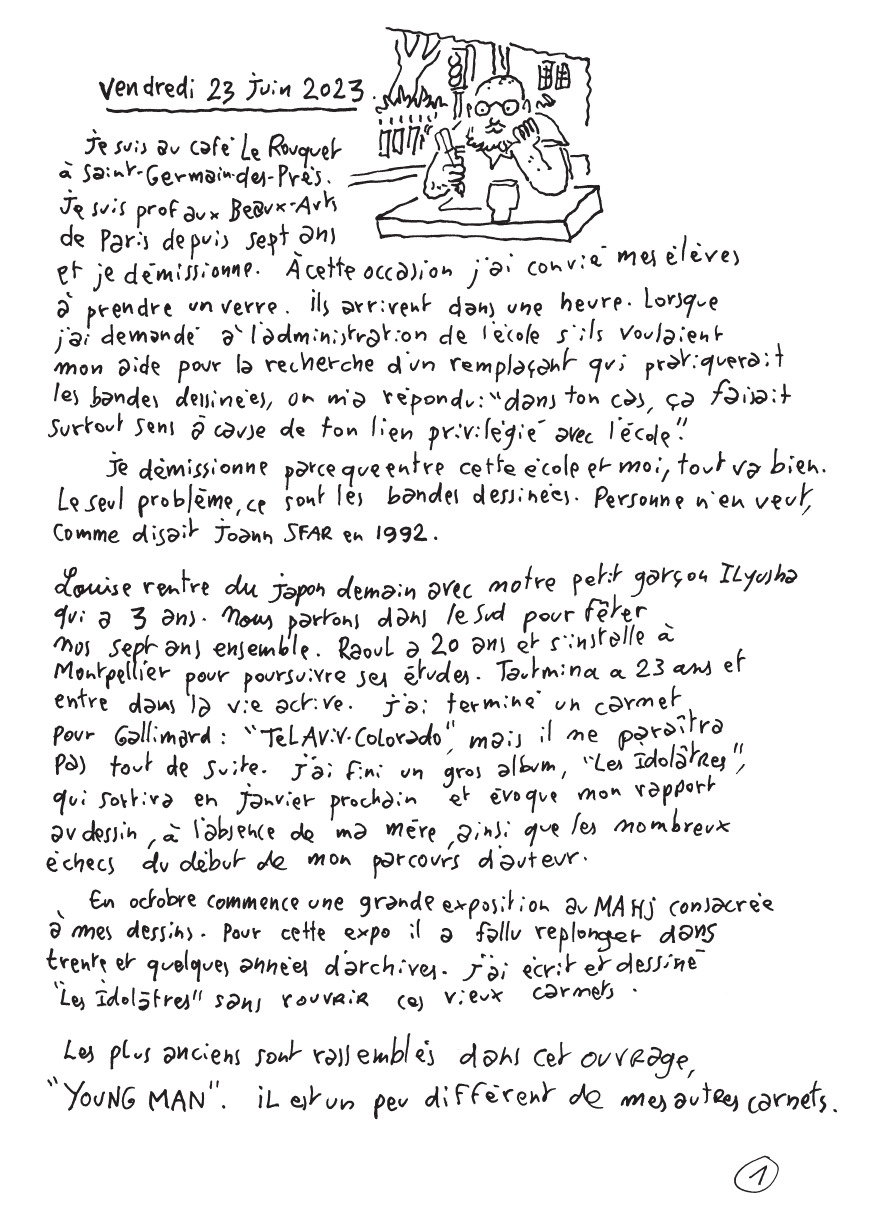 Vendredi 23 juin 2023.
Je suis au café Le Rouquet
à Saint-Germain-des-Près.
Je suis prof aux Beaux-Arts
de Paris depuis sept ans
et je démissionne. À cette occasion j'ai convié mes élèves
à prendre un verre. ils arrivent dans une heure. Lorsque
j'ai demandé à l'administration de l'école s'ils voulaient
mon aide pour la recherche d'un remplaçant qui pratiquerait
les bandes dessinées, on m'a répondu: "dans ton cas, ça faisait
surtout sens à cause de ton lien privilégié avec l'école".
Je démissionne parce que entre cette école et moi, tout va bien.
Le seul problème, ce sont les bandes dessinées. Personne n'en veut,
comme disait Joann SFAR en 1992.
Louise rentre du japon demain avec notre petit garçon ILyusha
qui a 3 ans. Nous partons dans le sud pour fêter
nos sept ans ensemble. Raoul a 20 ans et s'installe à
Montpellier pour poursuivre ses études. Tautmina a 23 ans et
entre dans la vie active. j'ai terminé un carnet
pour Gallimard: "TeL AViV-Colorado", mais il ne paraîtra
pas tout de suite. j'ai fini un gros album, "Les Idolâtres",
qui sortira en janvier prochain et évoque mon rapport
au dessin, à l'absence de ma mère, ainsi que les nombreux
échecs du début de mon parcours d'auteur.
En octobre commence une grande exposition au MAHJ consacrée
à mes dessins. Pour cette expo il a fallu replonger dans
trente et quelques années d'archives. J'ai écrit et dessiné
"Les Idolâtres" sans rouvrir ces vieux carnets.
Les plus anciens sont rassemblés dans cet ouvrage,
"YOUNG MAN". iL est un peu différent de mes autres carnets.
1